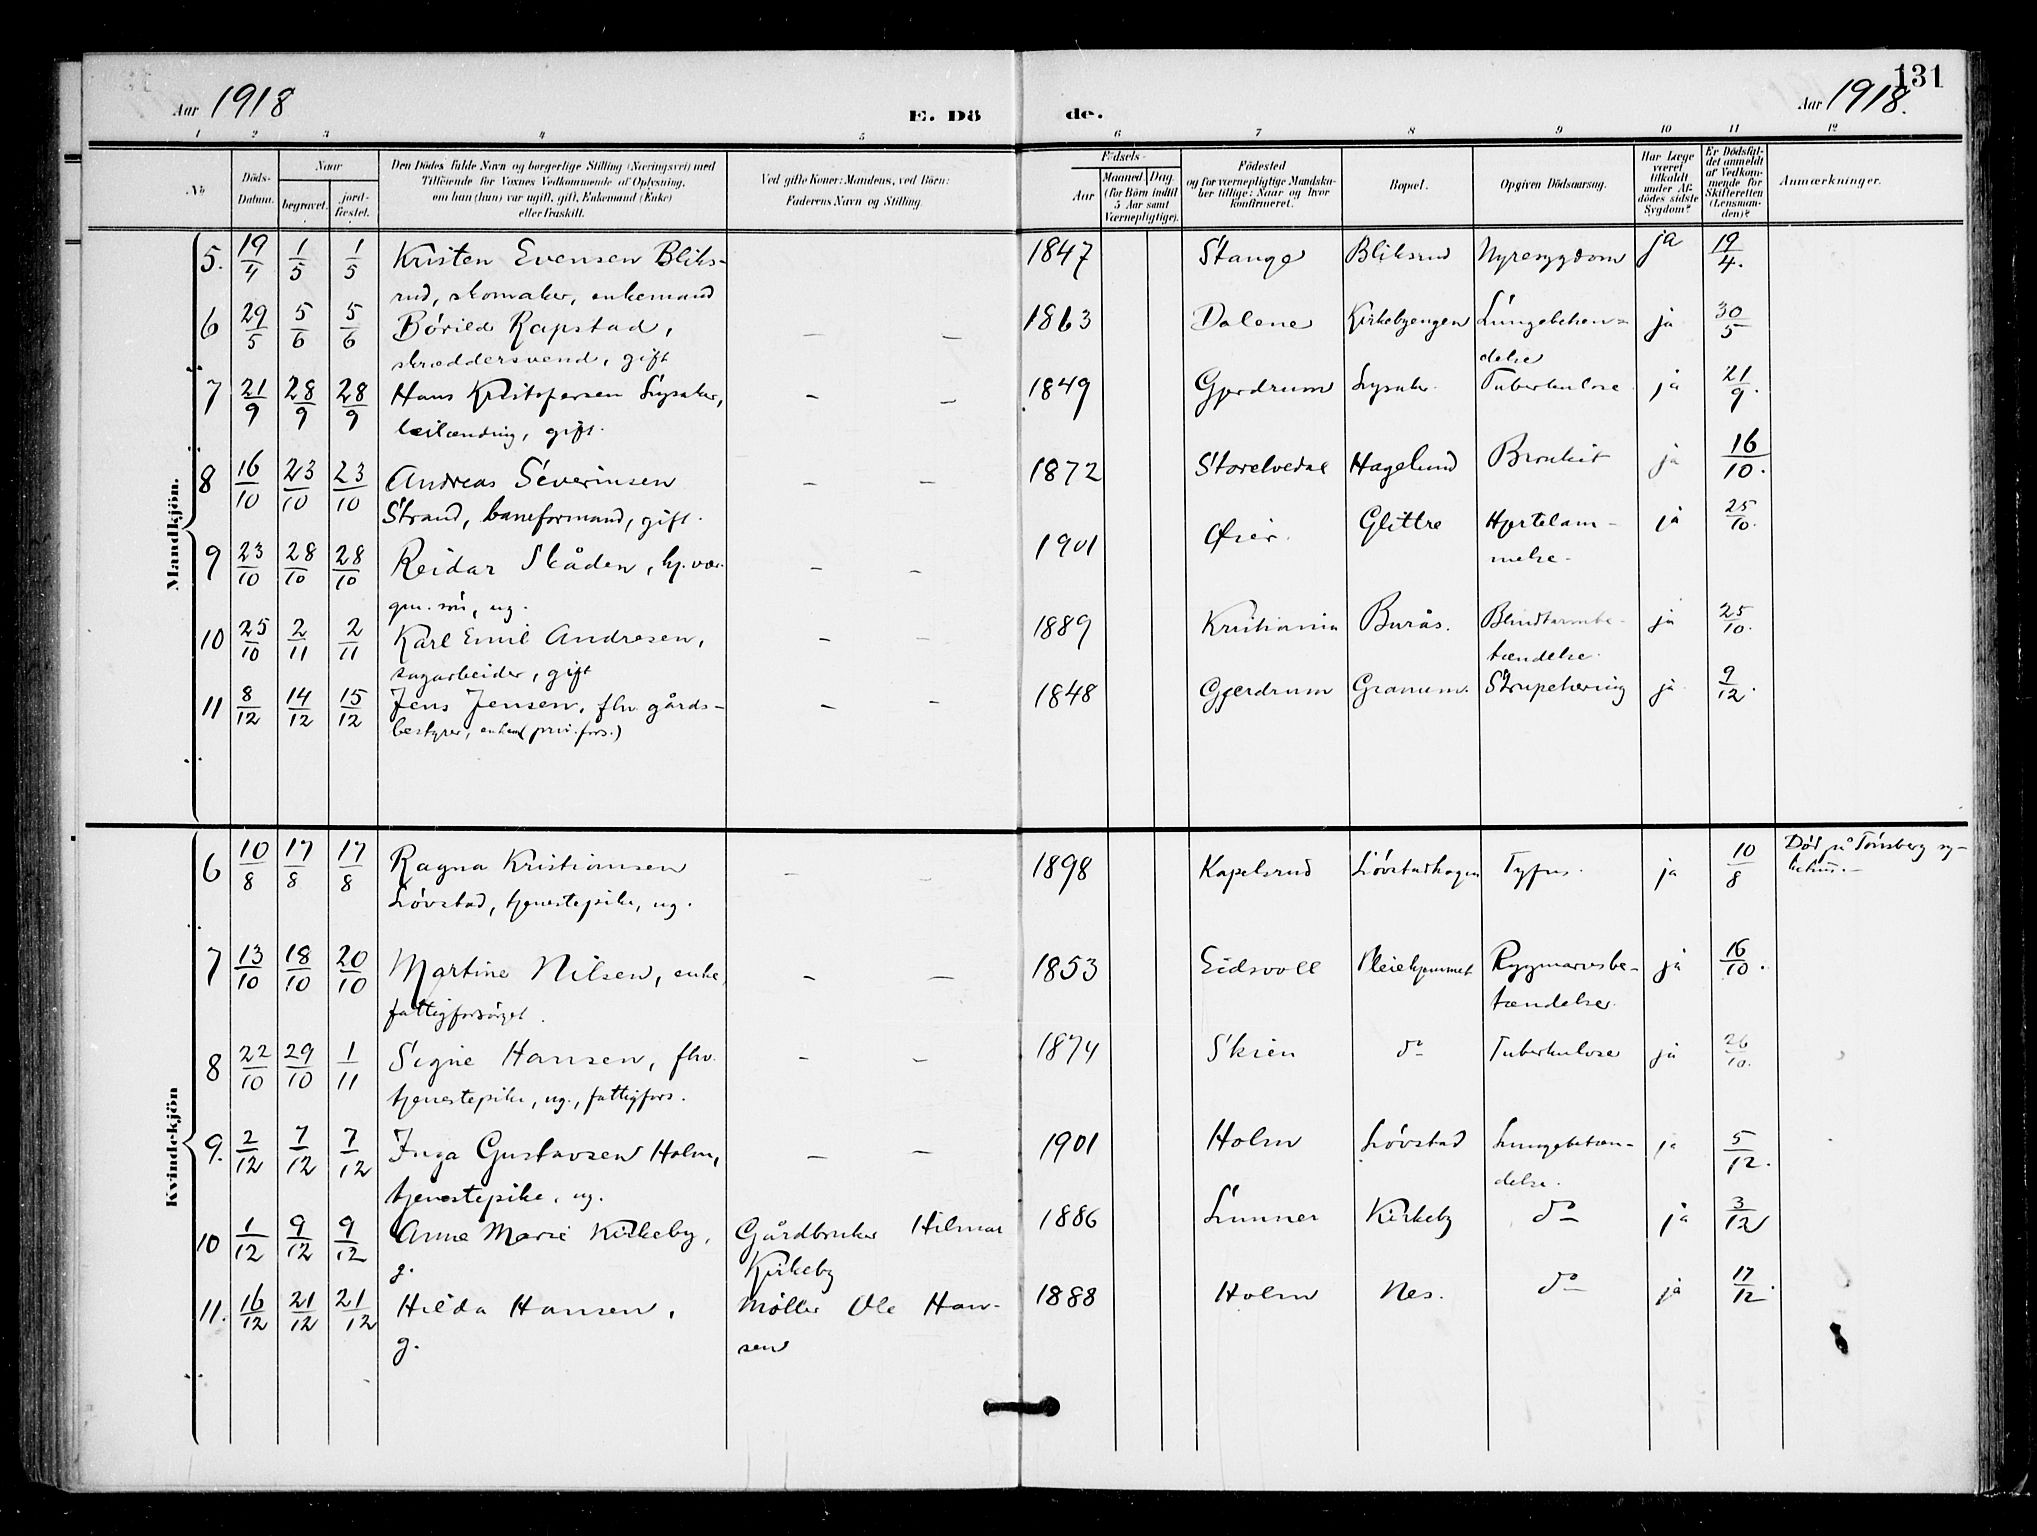 131
Aar 1918
E. Dö
de.
Aar 1918.
1 2 3 4 5 6 7 8 9 10 11 12
No
Döds-
Datum.
Naar
begravet.
jord-
fæstet.
Den Dödes fulde Navn og borgerlige Stilling (Næringsvei) med
Tilföiende for Voxnes Vedkommende af Oplysning,
om han (hun) var ugift, gift, Enkemand (Enke)
eller fraskilt.
Ved gifte Koner: Mandens, ved Börn:
Faderens Navn og Stilling.
Födsels-
Aar
Maaned
Dag.
(for Börn indtil
5 Aar samt
Værnepligtige).
Födested
og for værnepligtige Mandska-
ber tillige: Naar og hvor
konfirmeret.
Bopæl.
Opgiven Dödsaarsag.
Har Læge
været
tilkaldt
under Af-
dödes sidste
Sygdom?
Er Dödsfal-
det anmeldt
af Vedkom-
mende for
Skifteretten
(Lensman-
den)?
Anmærkninger.
Mandkjön.
5. 19/4 1/5 1/5 Kristen Evensen Bliks- — — 1847 Stange Bliksrud Nyresygdom ja 19/4.
rud, skomaker, enkemand
6 29/5 5/6 5/6 Bórild Rapstad, — — 1863 Dalene Kirkebyengen Lungebehen- ja 30/5
skræddersvend, gift delse
7 21/9 28/9 28/9 Hans Kristofersen Lysaker, — — 1849 Gjerdrum Lysaker Tuberkulose ja 21/9.
leilænding, gift.
8 16/10 23/10 23/10 Andreas Severinsen — — 1872 Storelvedal Hagelund Bronkit ja 16/10.
Strand, baneformand, gift.
9 23/10 28/10 28/10 Reidar Skåden, hj. vær- — — 1901 Øier. Glittre Hjertelam- ja 25/10.
gm. sön, ug. melse.
10 25/10 2/11 2/11 Karl Emil Andresen, — — 1889 Kristiania Burås. Blindtarmbe- ja 25/10.
sagarbeider, gift tændelse.
11 8/12 14/12 15/12 Jens Jensen, fhv. gårds- — — 1848 Gjerdrum Granum. Strupehoring ja 9/12.
bestyrer, enkem (priv. fors.)
Kvindekjön
6 10/8 17/8 17/8 Ragna Kristiansen — — 1898 Kapelsrud Lóvstadhagen Tyfus. ja 10/8 Död på Tönsberg sy-
Lóvstad, tjenestepike, ug. kehus.
7 13/10 18/10 20/10 Martine Nilsen, enke, — — 1853 Eidsvoll Pleiehjemmet Rygmarvsbe- ja 16/10.
fattigforsörget. tændelse
8 22/10 29/10 1/11 Signe Hansen, fhv. — — 1874 Skien do Tuberkulose ja 26/10.
tjenestepike, ug., fattigfors.
9. 2/12 7/12 7/12 Inga Gustavsen Holm, — — 1901 Holm Lóvstad Lungebetæn- ja 5/12.
tjenestepike, ug. delse.
10 1/12 9/12 9/12 Anne Marie Kirkeby, Gårdbruker Hilmar 1886 Lunner Kirkeby do ja 3/12
g. Kirkeby
11. 16/12 21/12 21/12 Hilda Hansen, Møller Ole Han- 1888 Holm Nes. do ja 17/12.
g. sen